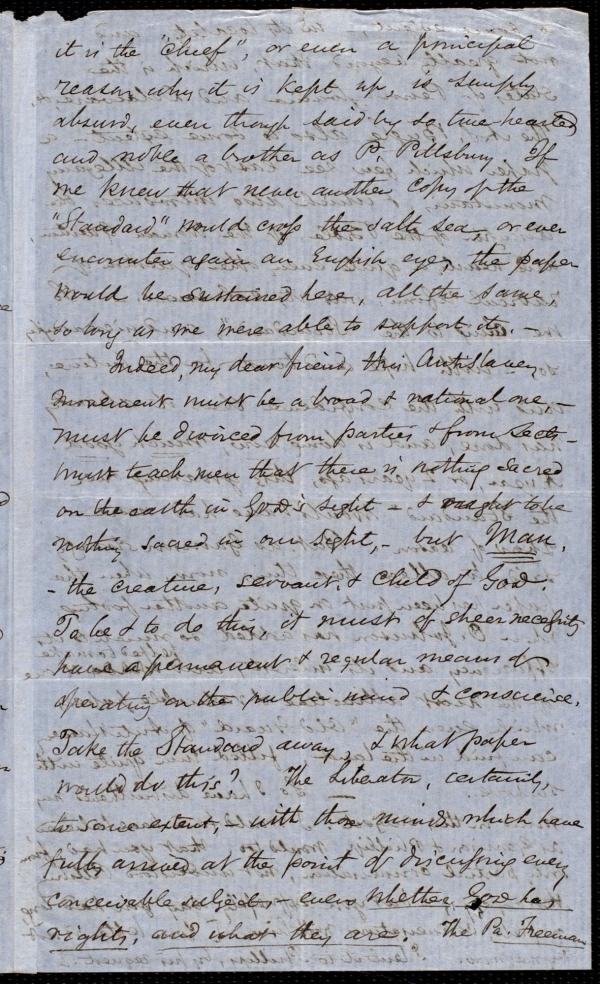 it is the "chief", or even a principal
reason why it is kept up, is simply
absurd, even though said by so true-hearted
and noble a brother as P. Pillsbury. If
we knew that never another copy of the
"Standard" would cross the salt sea, or ever
encounter again an English eye, the paper
would be sustained here, all the same,
so long as we were able to support it. -
Indeed, my dear friend, this Antislavery
movement must be a broad & national one -
must be divorced from parties & from sects -
must teach men that there is nothing sacred
on the earth in God's sight - & ought to be
nothing sacred in our sight, - but Man,
- the creature, servant, & child of God.
To be & to do this, it must of sheer necessity
have a permanent & regular means of
operating on the public mind & conscience.
Take the Standard away, & what paper
would do this? The Liberator, certainly,
to some extent, - with those minds which have
fully arrived at the point of discussing every
conceivable subject - even whether God has
rights, and what they are. The Pa. Freeman